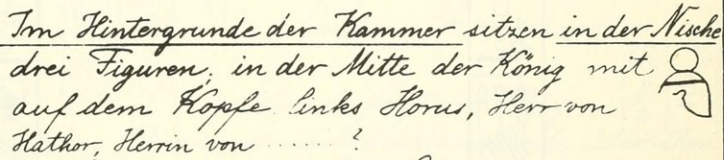 Im Hintergrunde der Kammer sitzen in der Nische
drei Figuren, in der Mitte der König mit
auf dem Kopfe links Horus, Herr von
Hathor, Herrin von ....... ?